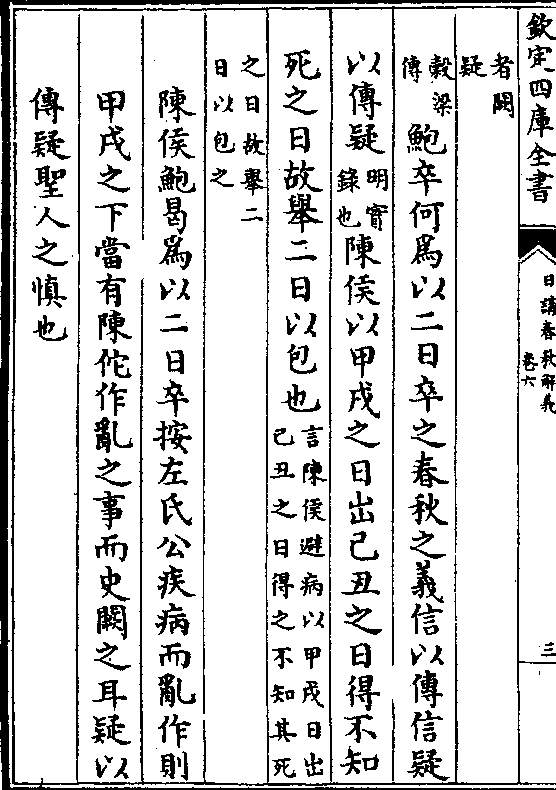 欽定四庫全書
日講春秋解義
卷六
三
者闕
疑
穀梁
傳
鮑卒何為以二日卒之春秋之義信以傳信疑
以傳疑
明實
錄也
陳侯以甲戌之日出己丑之日得不知
死之日故舉二日以包也
言陳侯避病以甲戌日出
己丑之日得之不知其死
之日故舉二
日以包之
陳侯鮑曷為以二日卒按左氏公疾病而亂作則
甲戌之下當有陳佗作亂之事而史闕之耳疑以
傳疑聖人之慎也